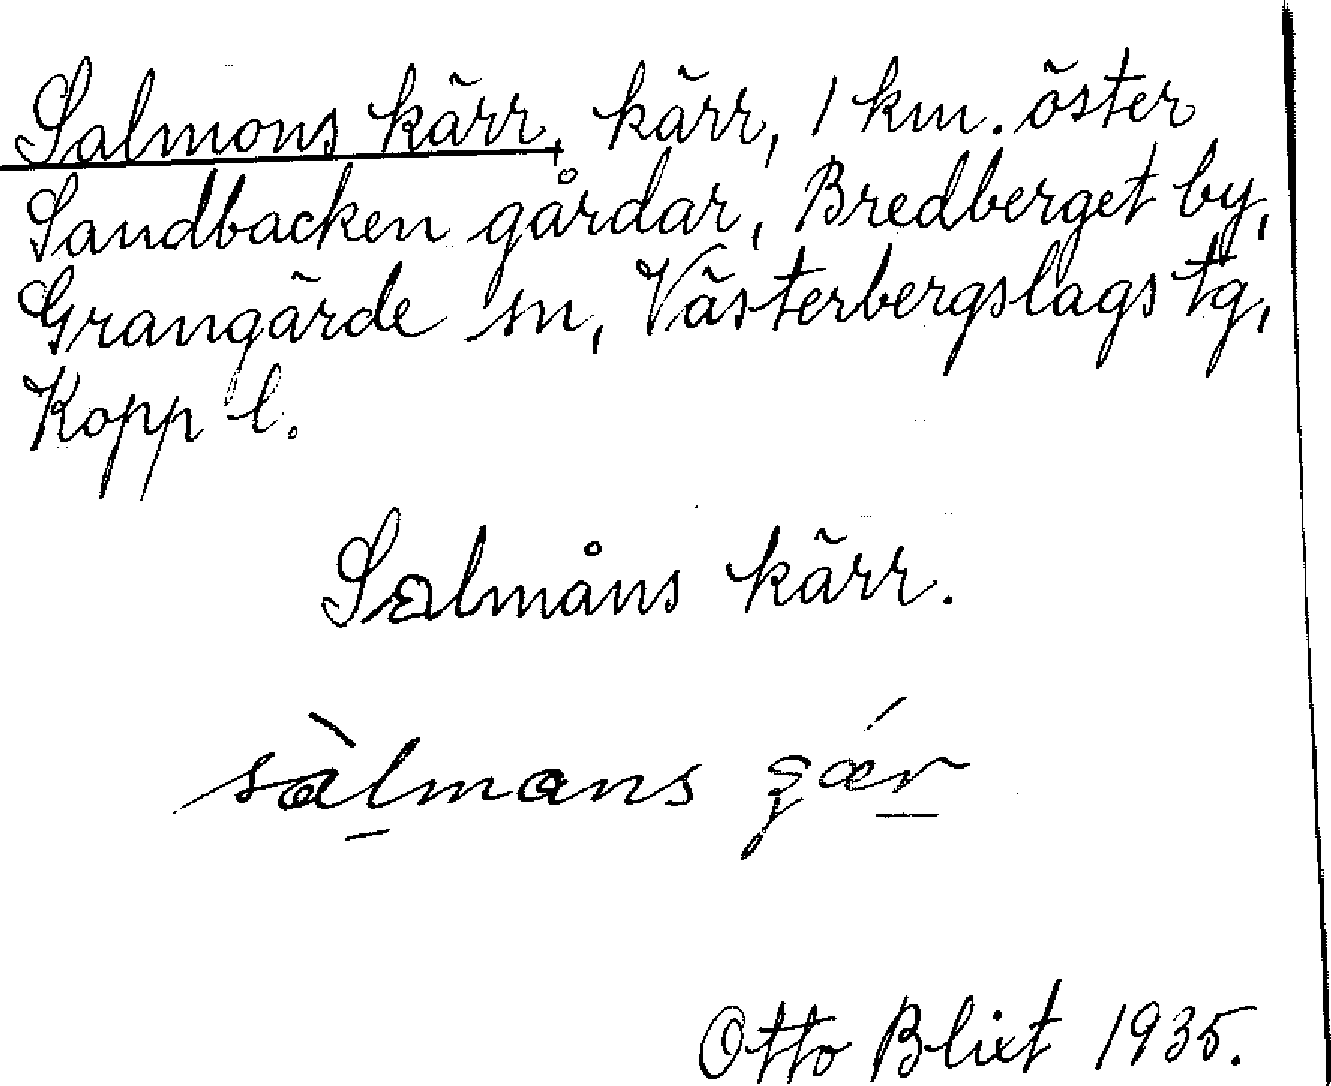 Salmons kärr, kärr, 1 km. öster
Sandbacken gårdar, Bredberget by,
Grangärde sn, Västerbergslags tg,
Kopp l.
Salmåns kärr.
sàlmans
Otto Blixt 1935.